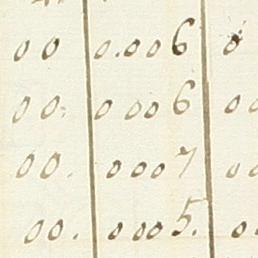 00 0.006 0
00: 0 006 00
00. 0007 00
00. 0005. 0.